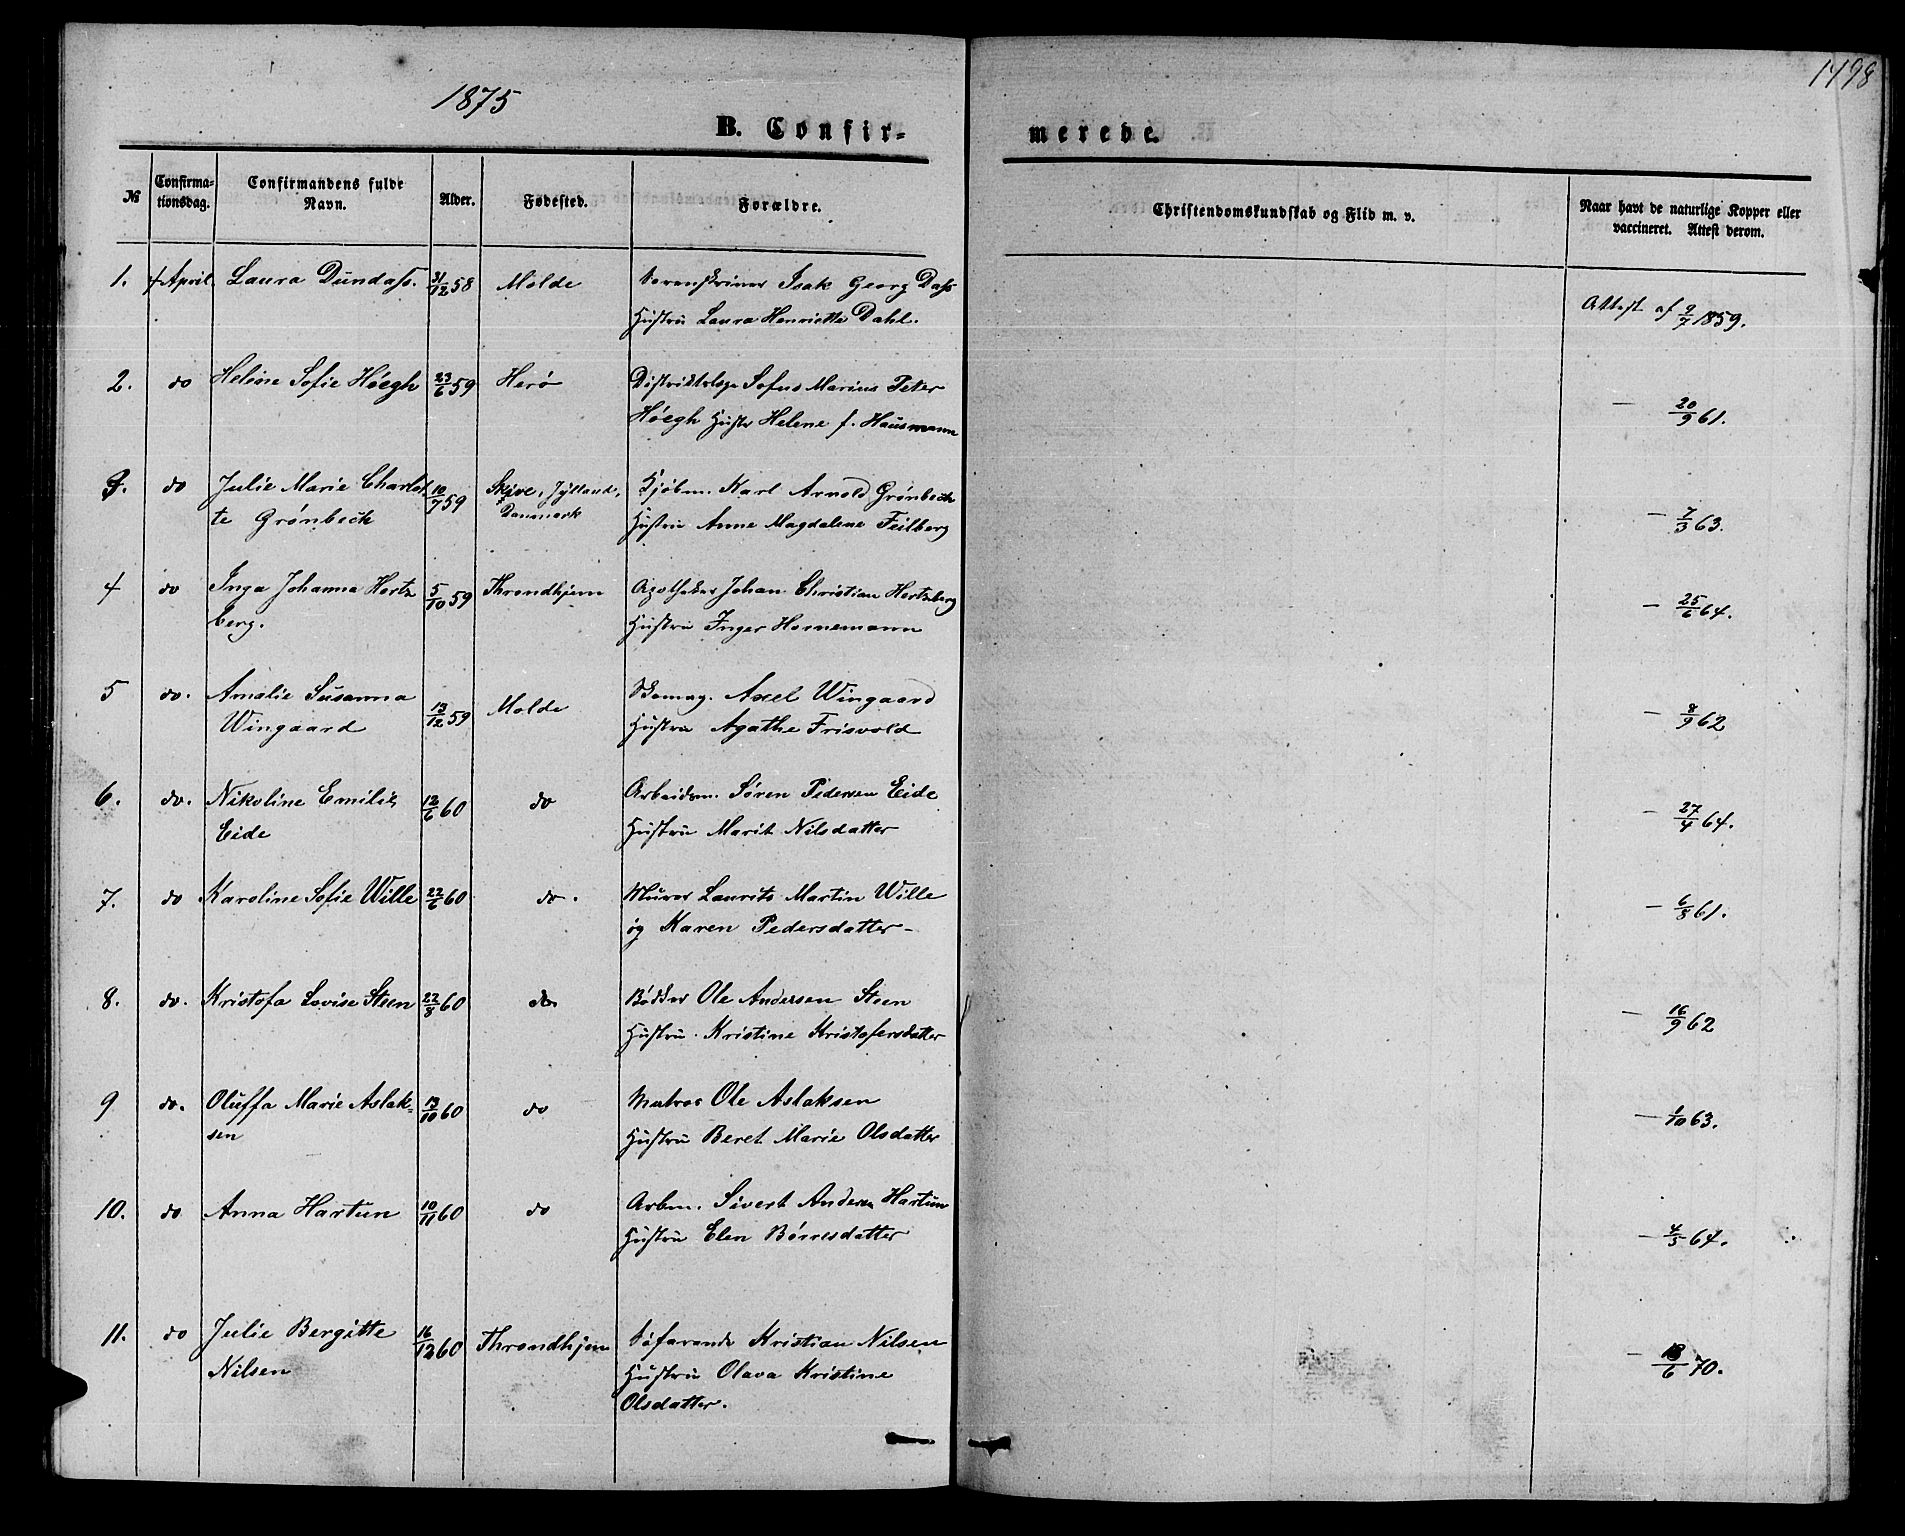 1875
1498
B. Confir=
merede.
№ Confirma=tionsdag. Confirmandens fulde Navn. Alder. Fødested. Forældre. Christendomskundskab og Flid m. v. Naar havt de naturlige Kopper eller vaccineret. Attest derom.
1. 4 April. Laura Dundass. 31/12 58 Molde Sorenskriver Isak Georg Dass
Hustru Laura Henriette Dahl. Attest af 9/7 1859.
2. do Helene Sofie Høegh 23/6 59 Herø Distriktslæge Sofus Marius Peter
Høegh Hustr Helene f. Hausmann — 20/9 61.
3. do Julie Marie Charlot 10/7 59 Skive, Jylland, Kjøbm. Karl Arnold Grønbech
te Grønbech Danmark Hustru Anne Magdalene Feilberg — 7/3 63.
4 do Inga Johanna Hertz 5/10 59 Throndhjem Apotheker Johan Christian Hertzberg
berg. Hustru Inger Hornemann — 25/6 64.
5 do. Amalie Susanna 13/12 59 Molde Skomag. Axel Wingaard
Wingaard Hustru Agathe Frisvold — 8/9 62
6. do. Nikoline Emilie 12/6 60 do Arbeidsm. Søren Pedersen Eide
Eide Hustru Marit Nilsdatter — 27/4 64.
7. do Karoline Sofie Wille 22/6 60 do. Murer Laurits Martin Wille
og Karen Pedersdatter — 6/8 61.
8. do. Kristofa Lovise Steen 22/8 60 do Bødker Ole Andersen Steen
Hustru Kristine Kristofersdatter — 16/9 62
9 do. Oluffa Marie Aslak= 13/10 60 do Matros Ole Aslaksen
sen Hustru Beret Marie Olsdatter — 1/10 63.
10. do Anna Hartun 10/11 60 do Arbm. Sivert Andersn Hartun
Hustru Elen Børresdatter — 4/5 64.
11. do Julie Bergitte 16/12 60 Throndhjem Søfarende Kristian Nilsen
Nilsen Hustru Olava Kristine
Olsdatter. — 18/6 70.